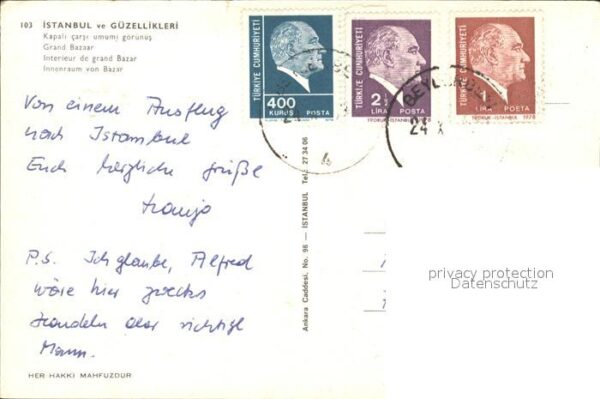 103 İSTANBUL ve GÜZELLİKLERİ
Kapalı çarşı umumi görünüş
Grand Bazaar
Interieur de grand Bazar
Innenraum von Bazar
TÜRKİYE CUMHURİYETİ
400
KURUŞ POSTA
TÜRKİYE CUMHURİYETİ
2½
LİRA POSTA
TİFDRUK-İSTANBUL 1978
TÜRKİYE CUMHURİYETİ
1
LİRA POSTA
TİFDRUK-İSTANBUL 1978
24 X
Von einem Ausflug
nach Istambul
Euch herzliche Grüße
P.S. Ich glaube, Alfred
wäre hier zwecks
Handeln der richtige
Mann.
Ankara Caddesi, No. 98 — İSTANBUL Tel: 27 34 06
HER HAKKI MAHFUZDUR
privacy protection
Datenschutz